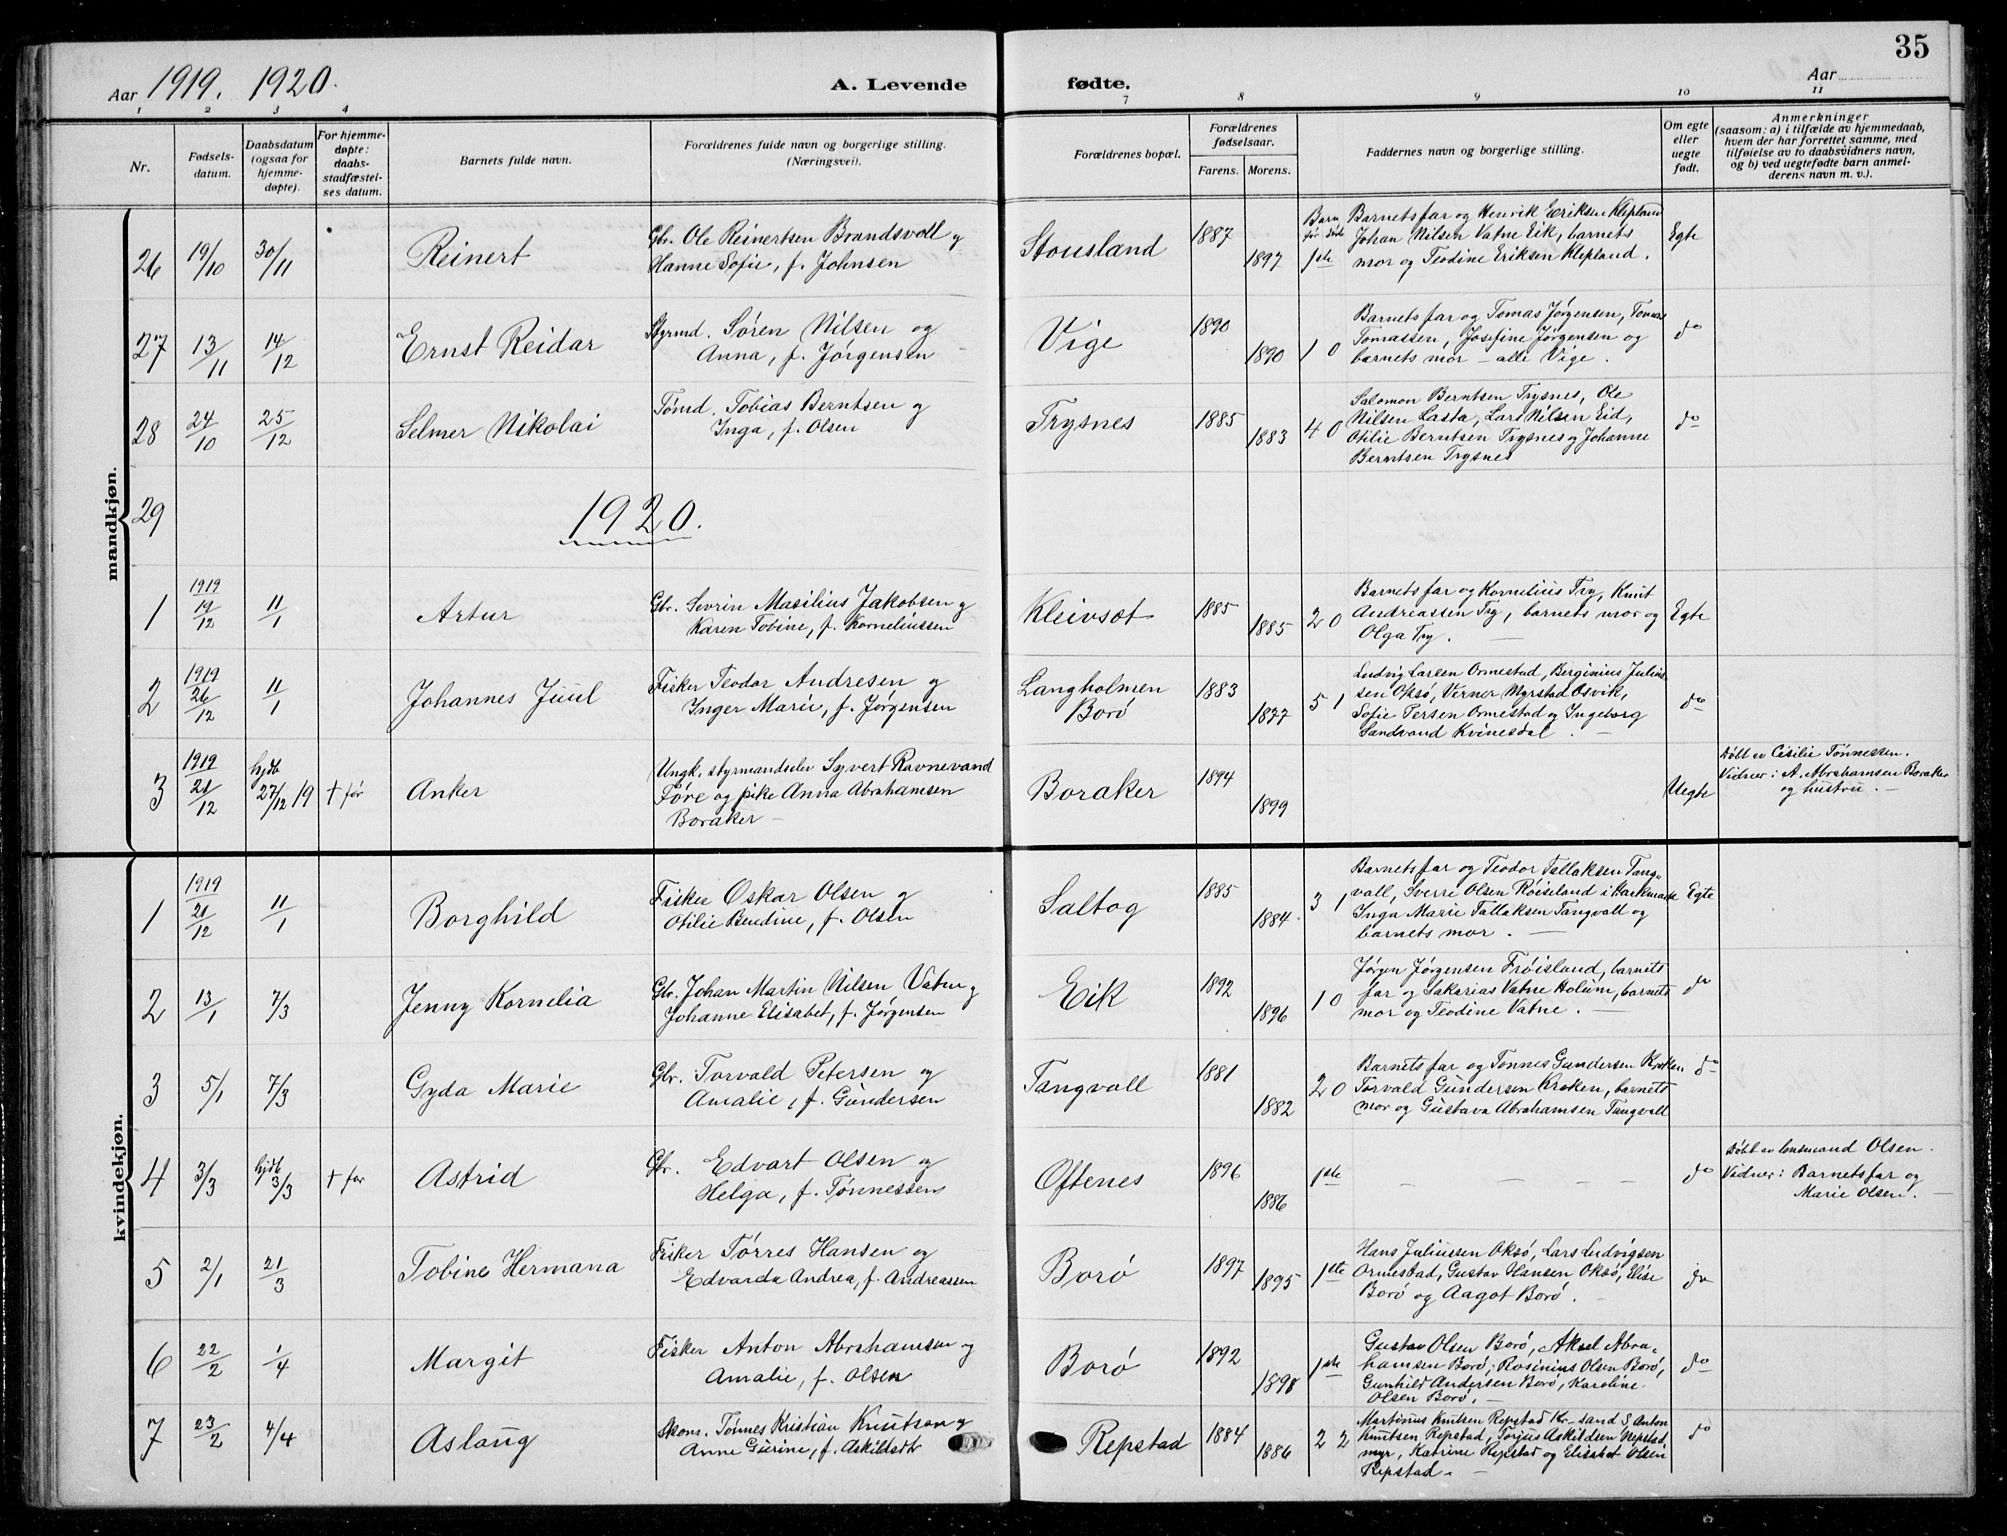 35
Aar 1919. 1920.
A. Levende fødte.
Aar
1 2 3 4 7 8 9 10 11
Nr.
Fødsels-
datum.
Daabsdatum
(ogsaa for
hjemme-
døpte).
For hjemme-
døpte:
daabs-
stadfæstel-
ses datum.
Barnets fulde navn.
Forældrenes fulde navn og borgerlige stilling.
(Næringsvei).
Forældrenes bopæl.
Forældrenes
fødselsaar.
Farens. Morens.
Faddernes navn og borgerlige stilling.
Om egte
eller
uegte
født.
Anmerkninger
(saasom: a) i tilfælde av hjemmedaab,
hvem der har forrettet samme, med
tilføielse av to daabsvidners navn,
og b) ved uegtefødte barn anmel-
derens navn m. v.).
mandkjøn.
26 19/10 30/11 Reinert
Gbr. Ole Reinertsen Brandsvoll og
Hanne Sofie, f. Johnsen
Stousland 1887 1897
Barn
før døde
1ste
Barnets far og Henrik Eriksen Klepland
Johan Nilsen Vatne Eik, barnets
mor og Teodine Eriksen Klepland.
Egte
27 13/11 14/12 Ernst Reidar
Styrmd. Søren Nilsen og
Anna, f. Jørgensen
Vige 1890 1890 1 0
Barnets far og Tomas Jørgensen, Tomas
Tomassen, Josefine Jørgensen og
barnets mor – alle Vige.
do
28 24/10 25/12 Selmer Nikolai
Tømd. Tobias Berntsen og
Inga, f. Olsen
Trysnes 1885 1883 4 0
Salomon Berntsen Trysnes, Ole
Nilsen Lasta, Lars Nilsen Eid,
Otilie Berntsen Trysnes og Johanne
Berntsen Trysnes
do
29
1920.
1 1919 19/12 11/1 Artur
Gbr. Sevrin Masilius Jakobsen og
Karen Tobine, f. Korneliussen
Kleivset 1885 1885 2 0
Barnets far og Kornelius Try, Knut
Andreassen Try, barnets mor og
Olga Try.
Egte
2 1919 26/12 11/1 Johannes Juul
Fisker Teodor Andresen og
Inger Marie, f. Jørgensen
Langholmen
Borø
1883 1877 5 1
Ludvig Larsen Ormestad, Berginius Julius-
sen Oksø, Verner Myrstad Osvik,
Sofie Tersen Ormestad og Ingeborg
Sandvand Kvinesdal.
do
3 1919 21/12 hjdb 27/12 19 + før Anker
Ungk. styrmandselev Syvert Ravnevand
Føre og pike Anna Abrahamsen
Boraker –
Boraker 1894 1899
Uegte
Døbt av Cesilie Tønnessen.
Vidner: A. Abrahamsen Boraker
og hustru. –
kvindekjøn.
1 1919 21/12 11/1 Borghild
Fisker Oskar Olsen og
Otilie Bendine, f. Olsen
Saltog 1885 1884 3 1
Barnets far og Teodor Tallaksen Tang-
vall, Sverre Olsen Røiseland i Harkmark
Inga Marie Tallaksen Tangvall og
barnets mor. –
Egte
2 13/1 7/3 Jenny Kornelia
Gbr. Johan Martin Nilsen Vatne og
Johanne Elisabet, f. Jørgensen
Eik 1892 1896 1 0
Jørgen Jørgensen Frøisland, barnets
far og Sakarias Vatne Holum, barnets
mor og Teodine Vatne. –
do
3 5/1 7/3 Gyda Marie
Gbr. Torvald Petersen og
Amalie, f. Gundersen
Tangvall 1881 1882 2 0
Barnets far og Tønnes Gundersen Kroken
Torvald Gundersen Kroken, barnets
mor og Gustava Abrahamsen Tangvall
do
4 3/3 hjdb 3/3 + før Astrid
Gbr. Edvart Olsen og
Helga, f. Tønnessen
Oftenes 1896 1886 1ste – – – – –
do
Døbt av lensmand Olsen.
Vidner: Barnets far og
Marie Olsen. –
5 2/1 21/3 Tobine Hermana
Fisker Tørres Hansen og
Edvarda Andrea, f. Andreassen
Borø 1897 1895 1ste
Hans Juliussen Oksø, Lars Ludvigsen
Ormestad, Gustav Hansen Oksø, Elise
Borø og Aagot Borø. –
do
6 22/2 1/4 Margit
Fisker Anton Abrahamsen og
Amalie, f. Olsen
Borø 1892 1898 1ste
Gustav Olsen Borø, Aksel Abra-
hamsen Borø, Rosinius Olsen Borø,
Gunhild Andersen Borø, Karoline
Olsen Borø. –
do
7 23/2 4/4 Aslaug
Skom. Tønnes Kristian Knutson og
Anne Gurine, f. Askildsdtr
Repstad 1884 1886 2 2
Martinus Knutsen Repstad Kr.-sand S, Anton
Knutsen Repstad, Torjus Askildsen Repstad
myr, Katrine Repstad og Elisabet Olsen
Repstad. –
do